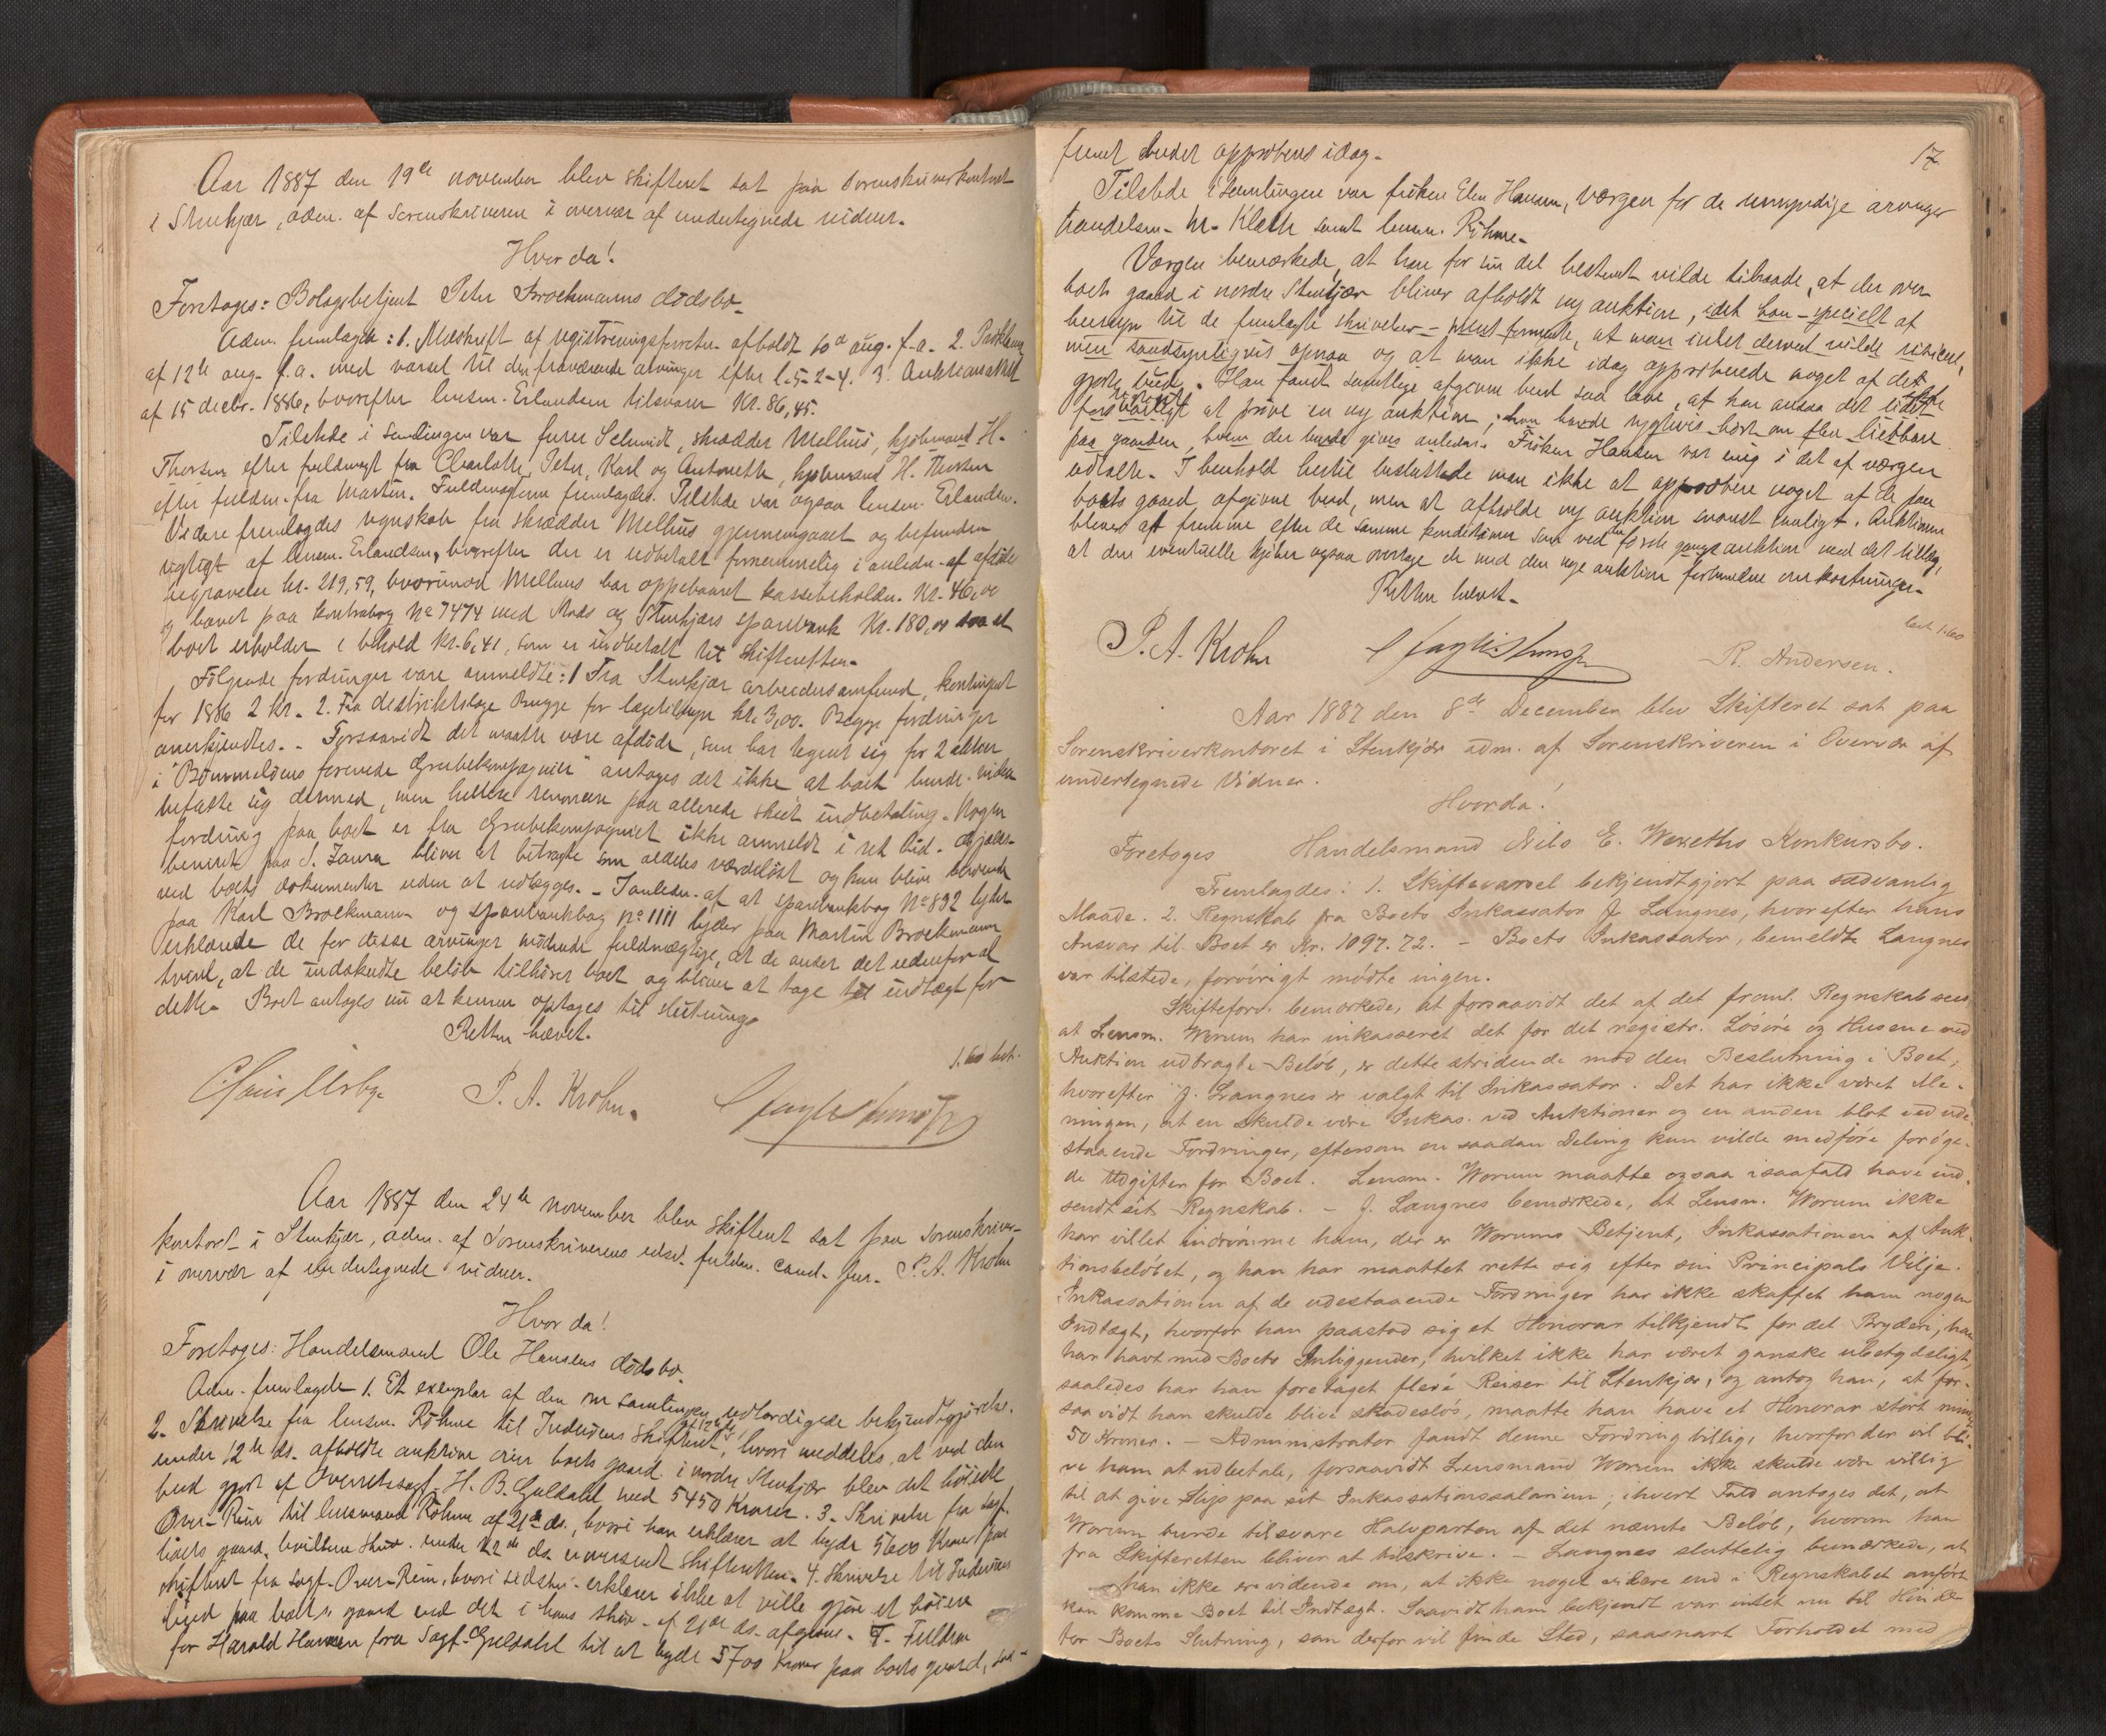 Aar 1887 den 19de november blev skifteret sat paa sorenskriverkontoret
i Stenkjær, adm. af Sorenskriveren i overvær af undertegnede vidner.
Hvor da!
Foretoges: Bolagsbetjent Peter Brockmanns dødsbo.
Adm. fremlagde: 1. Udskrift af registreringsforretn. afholdt 10de aug. f.a. 2. Proklama
af 12te aug. f.a. med varsel til den fraværende arvinger efter l. 5-2-4. 3. Auktionsakt
af 15 decbr. 1886, hvorefter lensm. Erlandsen tilsvarer Kr. 86,45.
Tilstede i samlingen var furer Schmidt, skrædder Melhus, kjøbmand H.
Thorsen efter fuldmagt fra Charlotte, Peter, Karl og Antonette, kjøbmand H. Thorsen
efter fuldm. fra Martin. Fuldmagterne fremlagdes. Tilstede var ogsaa lensm. Erlandsen.
Videre fremlagdes regnskab fra skrædder Melhus gjennemgaaet og befunden
rigtigt af lensm. Erlandsen, hvorefter der er udbetalt fornemmelig i anledn. af afdødes
begravelse kr. 219,59, hvorimod Melhus har oppebaaret kassebeholdn. Kr. 46,00
og hævet paa kontrabog No 7474 med Stods og Stenkjærs sparebank Kr. 180,00 saa at
boet erholder i behold Kr. 6,41, som er indbetalt til skifteretten.
Følgende fordringer vare anmeldte: 1 Fra Stenkjær arbeidersamfund, kontingent
for 1886 2 Kr. 2. Fra distriktslæge Brugge for lægetilsyn kr. 3,00. Begge fordringer
anerkjendtes. - Forsaavidt det maatte være afdøde, som har tegnet sig for 2 aktier
i "Bømmeløens forenede Grubekompagnier" antages det ikke at boet burde videre
befatte sig dermed, men hellere renoncere paa allerede skeet indbetaling. Nogen
fordring paa boet er fra Grubekompagniet ikke anmeldt i ret tid. Gjælds-
beviset paa S. Zaura bliver at betragte som aldeles værdeløst og kun blive beroende
ved boets dokumenter uden at udlægges. - I anledn. af at sparebankbog No 892 lyder
paa Karl Brockmann og sparebankbog no 1111 lyder paa Martin Brockmann
erklærede de for disse arvinger mødende fuldmægtige, at de anser det udenfor al
tvivl, at de indskudte beløb tilhører boet og bliver at tage til indtægt for
dette. Boet antages nu at kunne optages til slutning.
Retten hævet.
1.60 bet.
P. A. Krohn.
Aar 1887 den 24de november blev skifteret sat paa sorenskriver-
kontoret i Stenkjær, adm. af Sorenskriverens edsv. fuldm. cand. jur. P. A. Krohn
i overvær af undertegnede vidner.
Hvor da!
Foretoges: Handelsmand Ole Hansens dødsbo.
Adm. fremlagde 1. Et exemplar af den om samlingen udfærdigede bekjendtgjørelse.
2. Skrivelse fra lensm. Röhme til Inderøens skifteret, hvori meddeles, at ved den
under 12te ds. afholdte auktion over boets gaard i nordre Stenkjær blev det høieste
bud gjort af Overretssagf. H. B. Guldahl med 5450 Kroner. 3. Skrivelse fra sagf.
Over-Rein til lensmand Röhme af 21de ds., hvori han erklærer at byde 5600 Kroner paa
boets gaard, hvilken skriv. under 22de ds. er oversendt skifteretten. 4. Skrivelse til Inderøens
skifteret fra sagf. Over-Rein, hvori sidstn. erklærer ikke at ville gjøre et høiere
bud paa boets gaard end det i hans skriv. af 21de ds. afgivne. 5. Fuldm.
for Harald Hansen fra Sagf. Guldahl til at byde 5700 Kroner paa boets gaard, saa-
17.
fremt budet approberes idag.
Tilstede i samlingen var frøken Elen Hansen, værgen for de umyndige arvinger
handelsm. Hr. Klæth samt lensm. Röhme.
Værgen bemærkede, at han for sin del bestemt vilde tilraade, at der over
boets gaard i nordre Stenkjær bliver afholdt ny auktion, idet han - specielt af
hensyn til de fremlagte skrivelser - mente formente, at man intet derved vilde risikere,
men sandsynligvis opnaa og at man ikke idag approberede noget af det
gjorte bud. Han fandt samtlige afgivne bud saa lave, at han ansaa det lidet
forsvarligt at prøve en ny auktion; han havde rygtevis hørt om flere liebhavere
paa gaarden, hvem der burde gives anledn. Frøken Hansen var enig i det af værgen
udtalte. I henhold hertil besluttede man ikke at approbere noget af de paa
boets gaard afgivne bud, men at afholde ny auktion snarest muligt. Auktionen
bliver at fremme efter de samme konditioner som ved første gangs auktion med det tillæg,
at den eventuelle kjøber ogsaa overtage de med den nye auktion forbundne omkostninger.
Retten hævet.
bet. 1.60
P. A. Krohn
R. Andersen.
Aar 1887 den 8de December blev Skifteret sat paa
Sorenskriverkontoret i Stenkjær adm. af Sorenskriveren i Overvær af
undertegnede Vidner.
Hvorda!
Foretoges Handelsmand Nils E. Wekseths Konkursbo.
Fremlagdes: 1. Skiftevarsel bekjendtgjort paa sædvanlig
Maade. 2. Regnskab fra Boets Inkassator J. Langnes, hvorefter hans
Ansvar til Boet er Kr. 1097.72. - Boets Inkassator, bemeldte Langnes
var tilstede, forøvrigt mødte ingen.
Skifteforv. bemærkede, at forsaavidt det af det freml. Regnskab sees
at Lensm. Worum har inkasseret det for det registr. Løsøre og Husene ved
Auktion udbragte Beløb, er dette stridende mod den Beslutning i Boet,
hvorefter J. Langnes er valgt til Inkassator. Det har ikke været Me-
ningen, at en skulde være Inkas. ved Auktioner og en anden blot ved ude-
staaende Fordringer, eftersom en saadan Deling kun vilde medføre forøge-
de Udgifter for Boet. Lensm. Worum maatte ogsaa isaafald have ind-
sendt sit Regnskab. - J. Langnes bemærkede, at Lensm. Worum ikke
har villet indrømme ham, der er Worums Betjent, Inkassationen af Auk-
tionsbeløbet, og han har maattet rette sig efter sin Principals Vilje.
Inkassationen af de udestaaende Fordringer har ikke skaffet ham nogen
Indtægt, hvorfor han paastod sig et Honorar tilkjendt for det Bryderi, han
har havt med Boets Anliggender, hvilket ikke har været ganske ubetydeligt,
saaledes har han foretaget flere Reiser til Stenkjær, og antog han, at for-
saavidt han skulde blive skadesløs, maatte han have et Honorar stort
50 Kroner. - Administrator fandt denne Fordring billig, hvorfor der vil bli-
ve ham at udbetale, forsaavidt Lensmand Worum ikke skulde være villig
til at give Slip paa sit Inkassationssalarium; ihvert Fald antages det, at
Worum burde tilsvare Halvparten af det nævnte Beløb, hvorom han
fra Skifteretten bliver at tilskrive. - Langnes sluttelig bemærkede, at
han ikke er vidende om, at ikke noget videre end i Regnskabet anført
kan komme Boet til Indtægt. Saavidt ham bekjendt var intet nu til Hinder
for Boets Slutning, som derfor vil finde Sted, saasnart Forholdet med